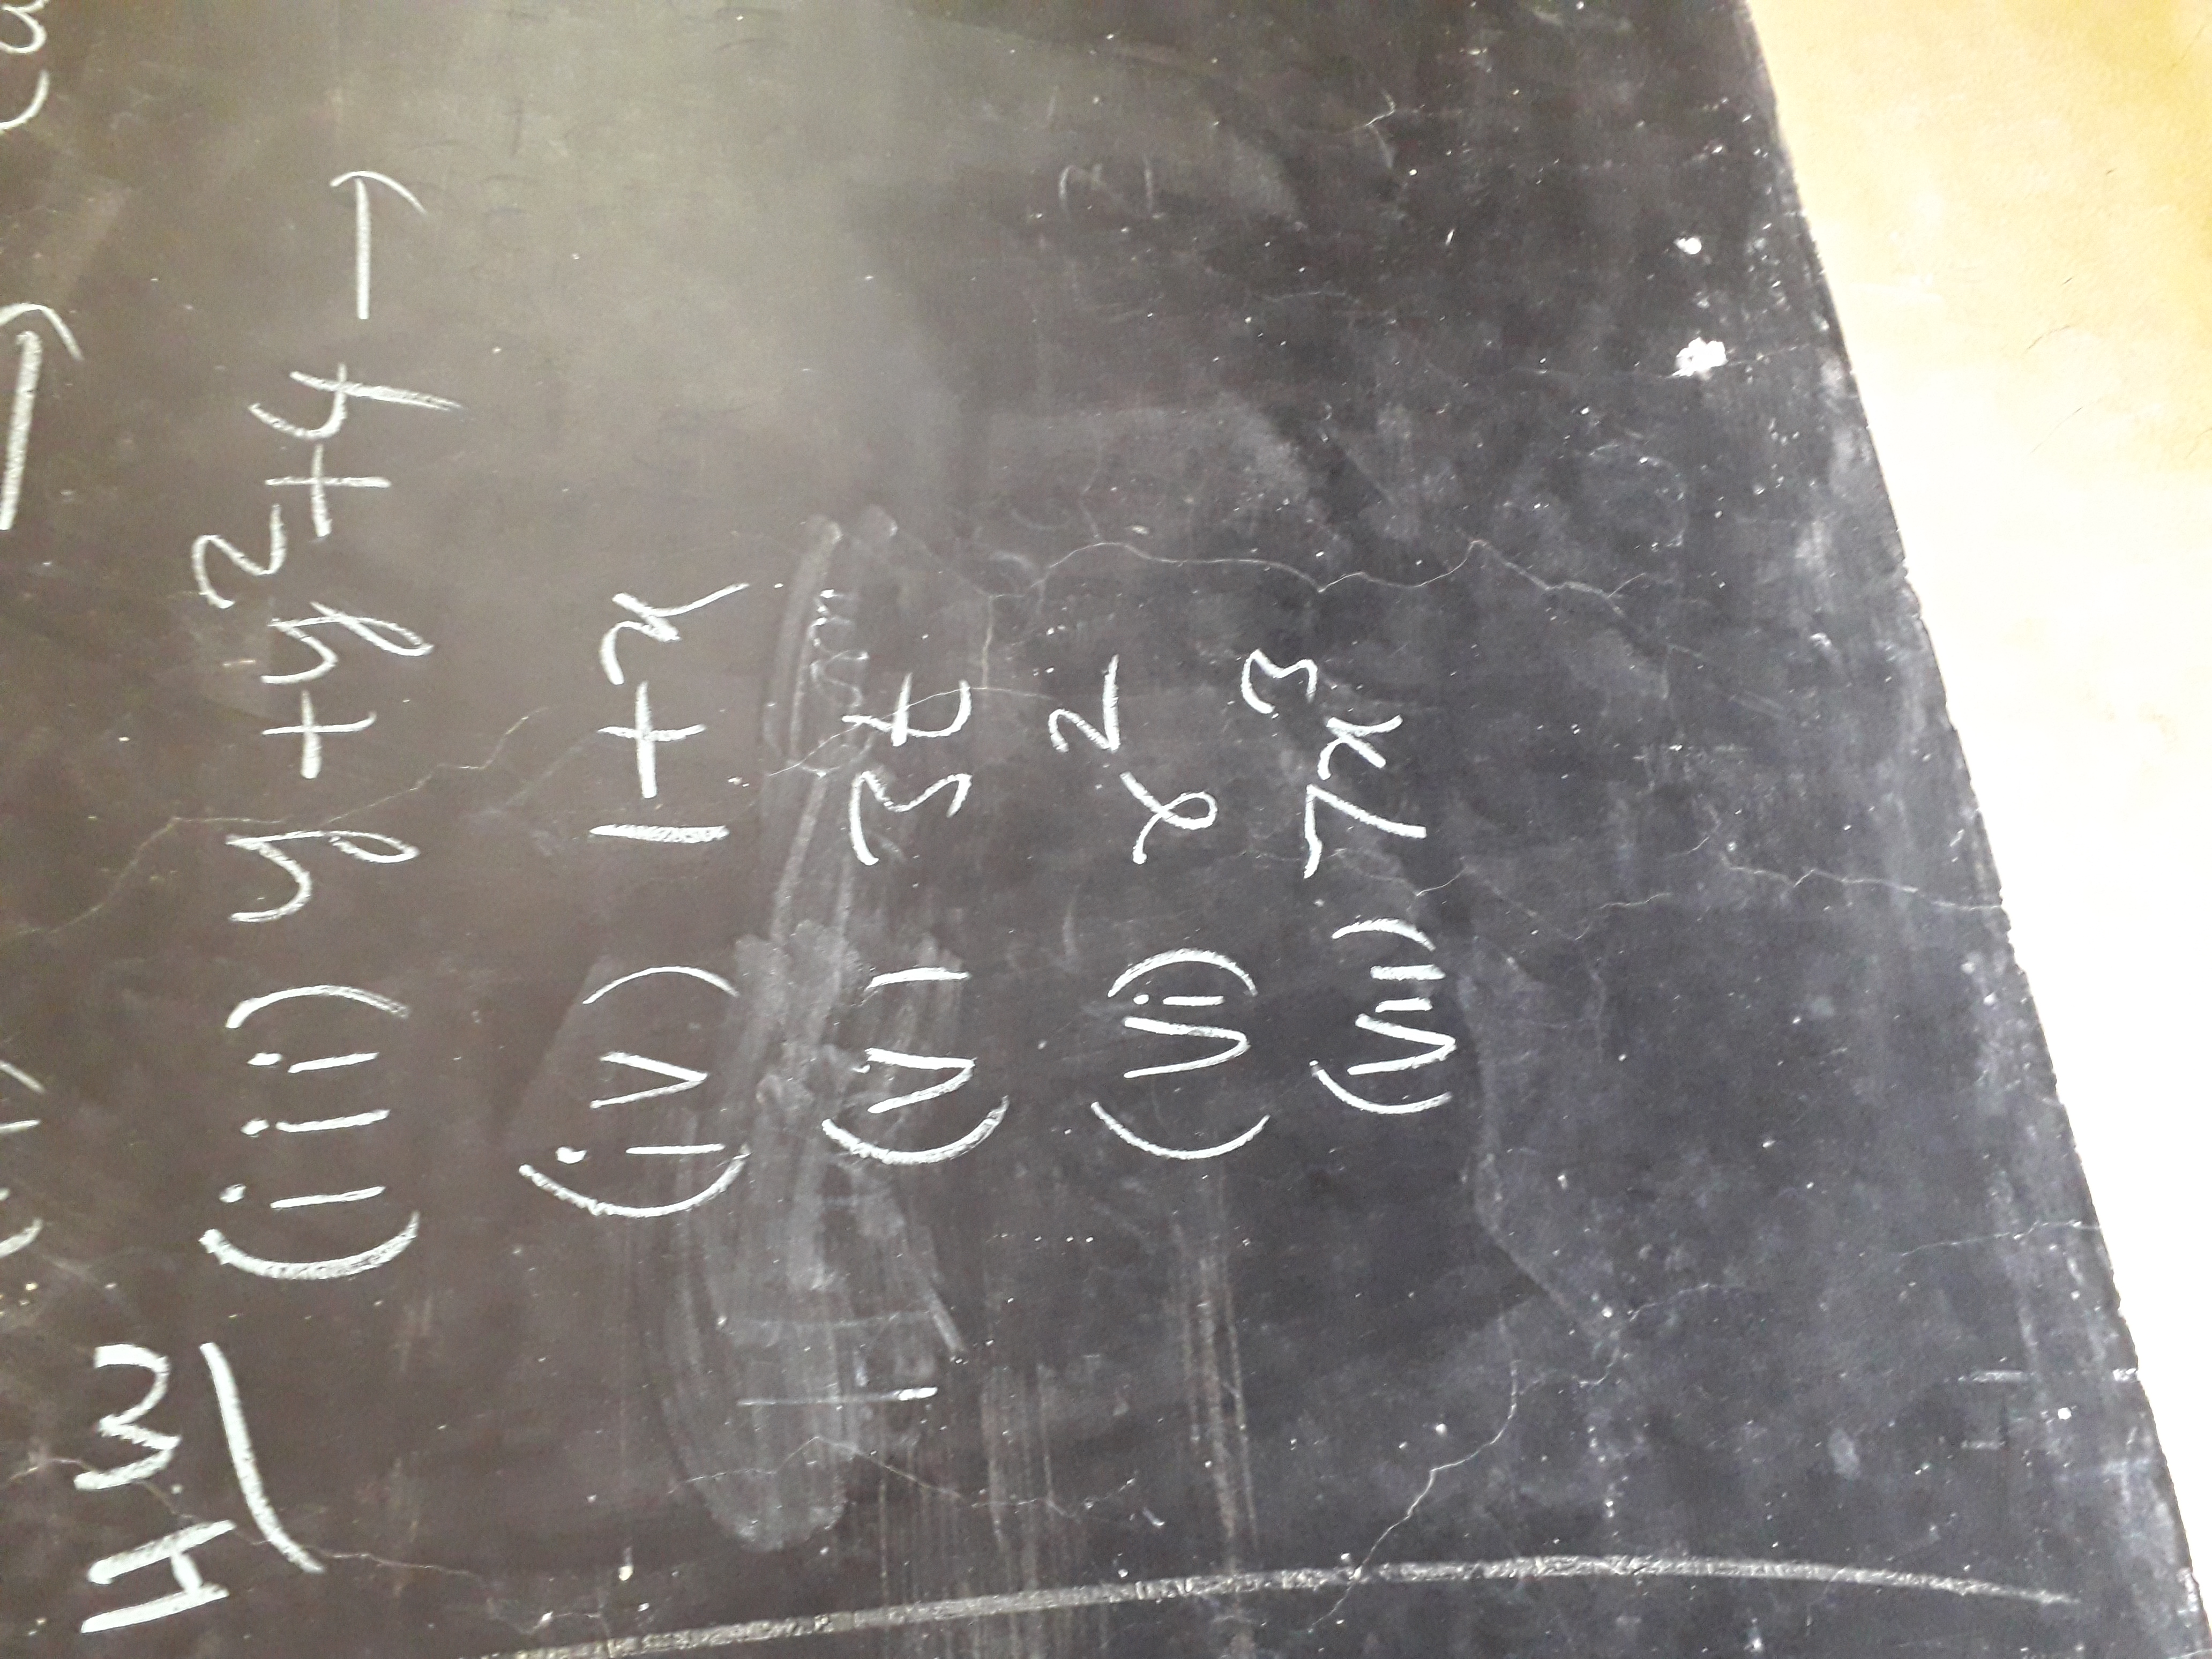 H.W
(iii) y + y² + 4 →
(iv) 1 + x
(v) 3t
(vi) x²
(vii) 7x³